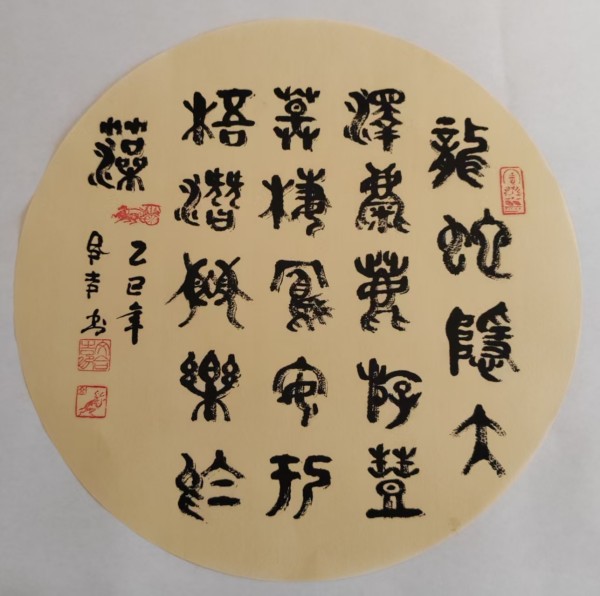 龍蛇隱大
澤麋鹿游豐
草棲鳳安於
梧潛魚樂於
藻
乙巳年
書